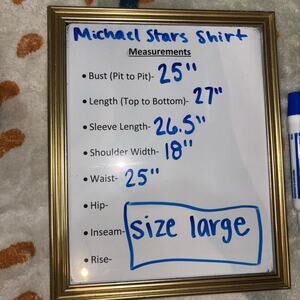 Michael Stars Shirt
Measurements
• Bust (Pit to Pit)- 25"
• Length (Top to Bottom)- 27"
• Sleeve Length- 26.5"
• Shoulder Width- 18"
• Waist- 25"
• Hip-
• Inseam-
size large
• Rise-